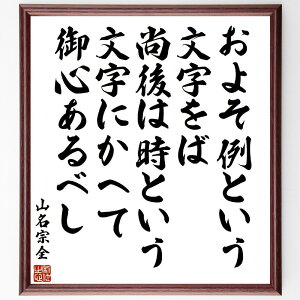 およそ例という
文字をば
尚後は時という
文字にかへて
御心あるべし
山名宗全